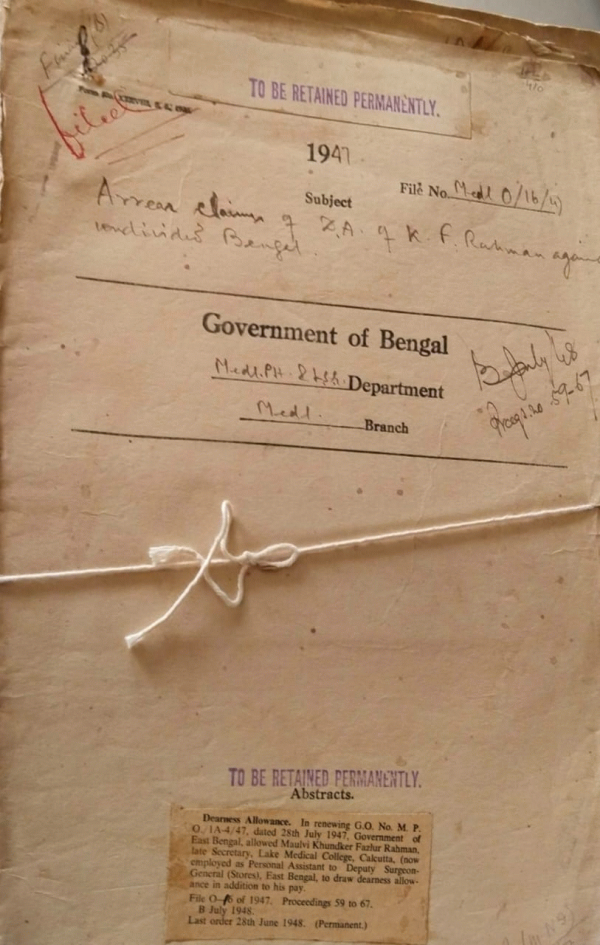 filed
TO BE RETAINED PERMANENTLY.
1947
File No. Medl O/16/47
Subject
Arrear claims of D.A. of K. F. Rahman against
undivided Bengal.
Government of Bengal
Medl. PH. & LSG. Department
Medl. Branch
B July 48
Progs. no 59-67
TO BE RETAINED PERMANENTLY.
Abstracts.
Dearness Allowance. In renewing G.O. No. M. P.
O. 1A-4/47, dated 28th July 1947, Government of
East Bengal, allowed Maulvi Khundker Fazlur Rahman,
late Secretary, Lake Medical College, Calcutta, (now
employed as Personal Assistant to Deputy Surgeon-
General (Stores), East Bengal, to draw dearness allow-
ance in addition to his pay.
File O-16 of 1947. Proceedings 59 to 67.
B July 1948.
Last order 28th June 1948. (Permanent.)